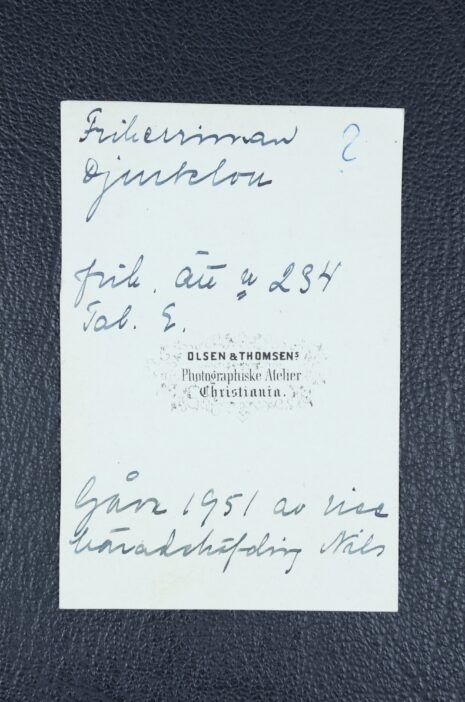 Friherrinnan ?
Djurklou
frih. ätt n 234
Tab. E.
OLSEN & THOMSENS
Photographiske Atelier
Christiania.
Gåva 1951 av vice
häradshöfding Nils